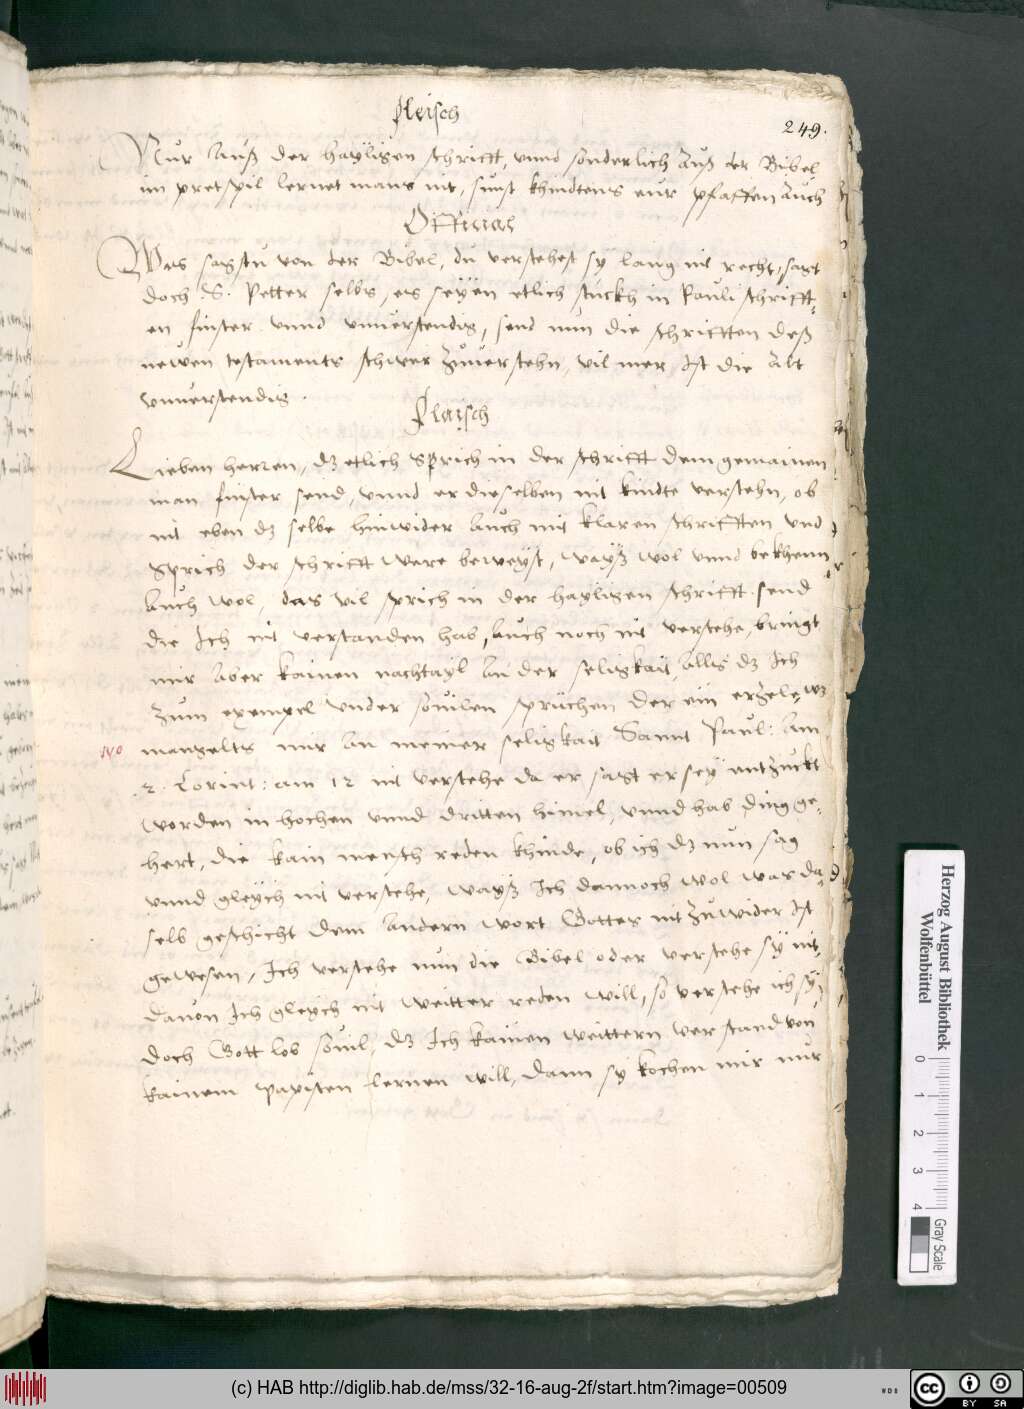 fleisch
249.
Nur auß der hayligen schrifft, vnnd sonderlich auß der Bibel,
im pretspil lernet mans nit, sunst khindtens eur pfaffen auch
Official
Was sagstu von der Bibel, du verstehest sy lang nit recht, sagt
doch .S. Petter selbs, es seyen etlich stuckh in Pauli schrifft-
en finster vnnd vnuerstendig, send nun die schrifften deß
newen testaments schwer zuuerstehn, vil mer ist die alt
vnuerstendig.
flaisch
Lieben herren, dz etlich sprich in der schrifft dem gemainen
man finster send, vnnd er dieselben nit kindte verstehn, ob
nit eben dz selbe hinwider auch mit klaren schrifften vnd
sprich der schrifft were beweyst, wayß wol vnnd bekhenn
auch wol, das vil sprich in der hayligen schrifft send
die Ich nit verstanden hab, auch noch nit verstehe, bringt
mir aber kainen nachtayl an der seligkait, alls dz Ich
zum exempel vnder souilen sprüchen der ein erzele, wz
manngelts mir an meiner seligkait Sannt Paul: am
2. Corint: am 12 nit verstehe da er sagt er sey entzuckt
worden in hochen vnnd dritten himel, vnnd hab ding ge-
hert, die kain mensch reden khinde, ob ich dz nun sag
vnnd gleych nit verstehe, wayß Ich dannoch wol war da
selb geschicht dem andern wort Gottes nit zuwider ist
gewesen, Ich verstehe nun die Bibel oder verstehe sy nit,
dauon Ich gleych nit weitter reden will, so verstehe ich sy
doch Gott lob souil, dz Ich kainen weittern verstand von
kainem papisten lernen will, dann sy kochen mir nur
Herzog August Bibliothek
Wolfenbüttel
0 1 2 3 4
Gray Scale
(c) HAB http://diglib.hab.de/mss/32-16-aug-2f/start.htm?image=00509
WDB
cc BY SA